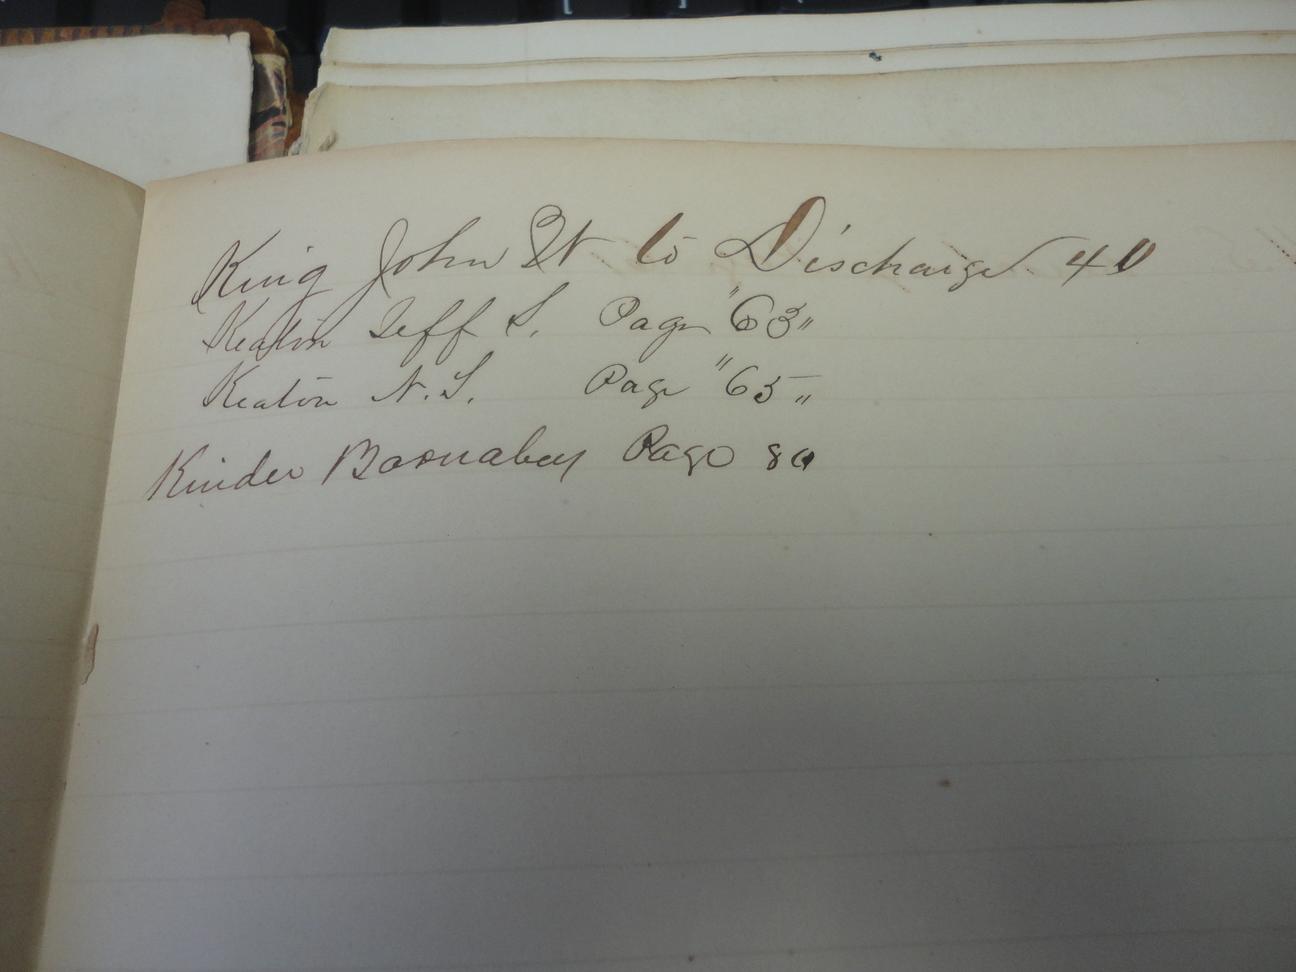 King John W to Discharge 40
Keaton Jeff S. Page "63"
Keaton N. S. Page "65"
Kinder Barnabey Page 80